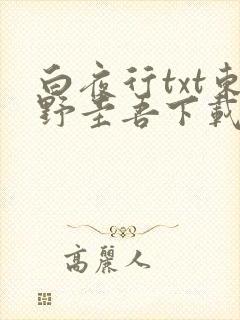 白夜行txt东
野圭吾下载
高麗人